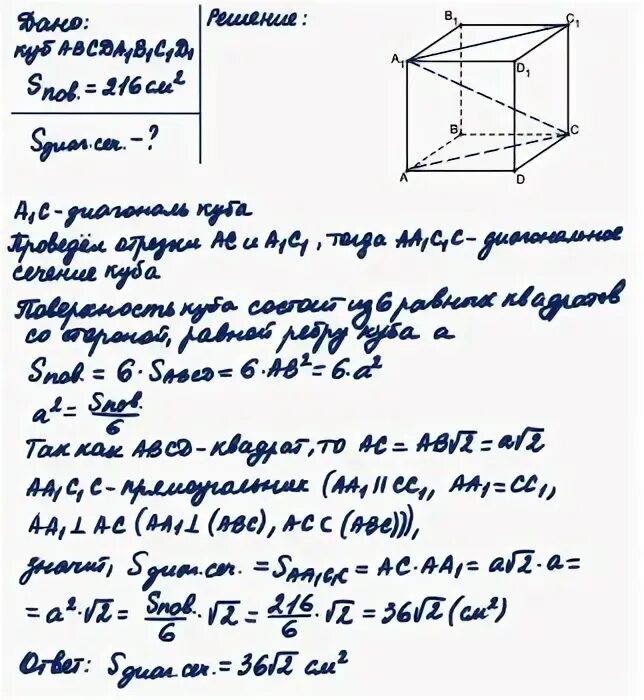 Дано:
куб ABCDA₁B₁C₁D₁
Sпов. = 216 см²
Sдиаг.сеч. - ?
Решение:
B₁
C₁
A₁
D₁
B
C
A
D
A₁C - диагональ куба
Проведём отрезки AC и A₁C₁, тогда AA₁C₁C - диагональное
сечение куба
Поверхность куба состоит из 6 равных квадратов
со стороной, равной ребру куба a
Sпов. = 6 · SABCD = 6 · AB² = 6 · a²
a² = Sпов./6
Так как ABCD - квадрат, то AC = AB√2 = a√2
AA₁C₁C - прямоугольник (AA₁ || CC₁, AA₁ = CC₁,
AA₁ ⊥ AC (AA₁ ⊥ (ABC), AC ⊂ (ABC))),
значит, Sдиаг.сеч. = SAA₁C₁C = AC · AA₁ = a√2 · a =
= a² · √2 = Sпов./6 · √2 = 216/6 · √2 = 36√2 (см²)
Ответ: Sдиаг.сеч. = 36√2 см²